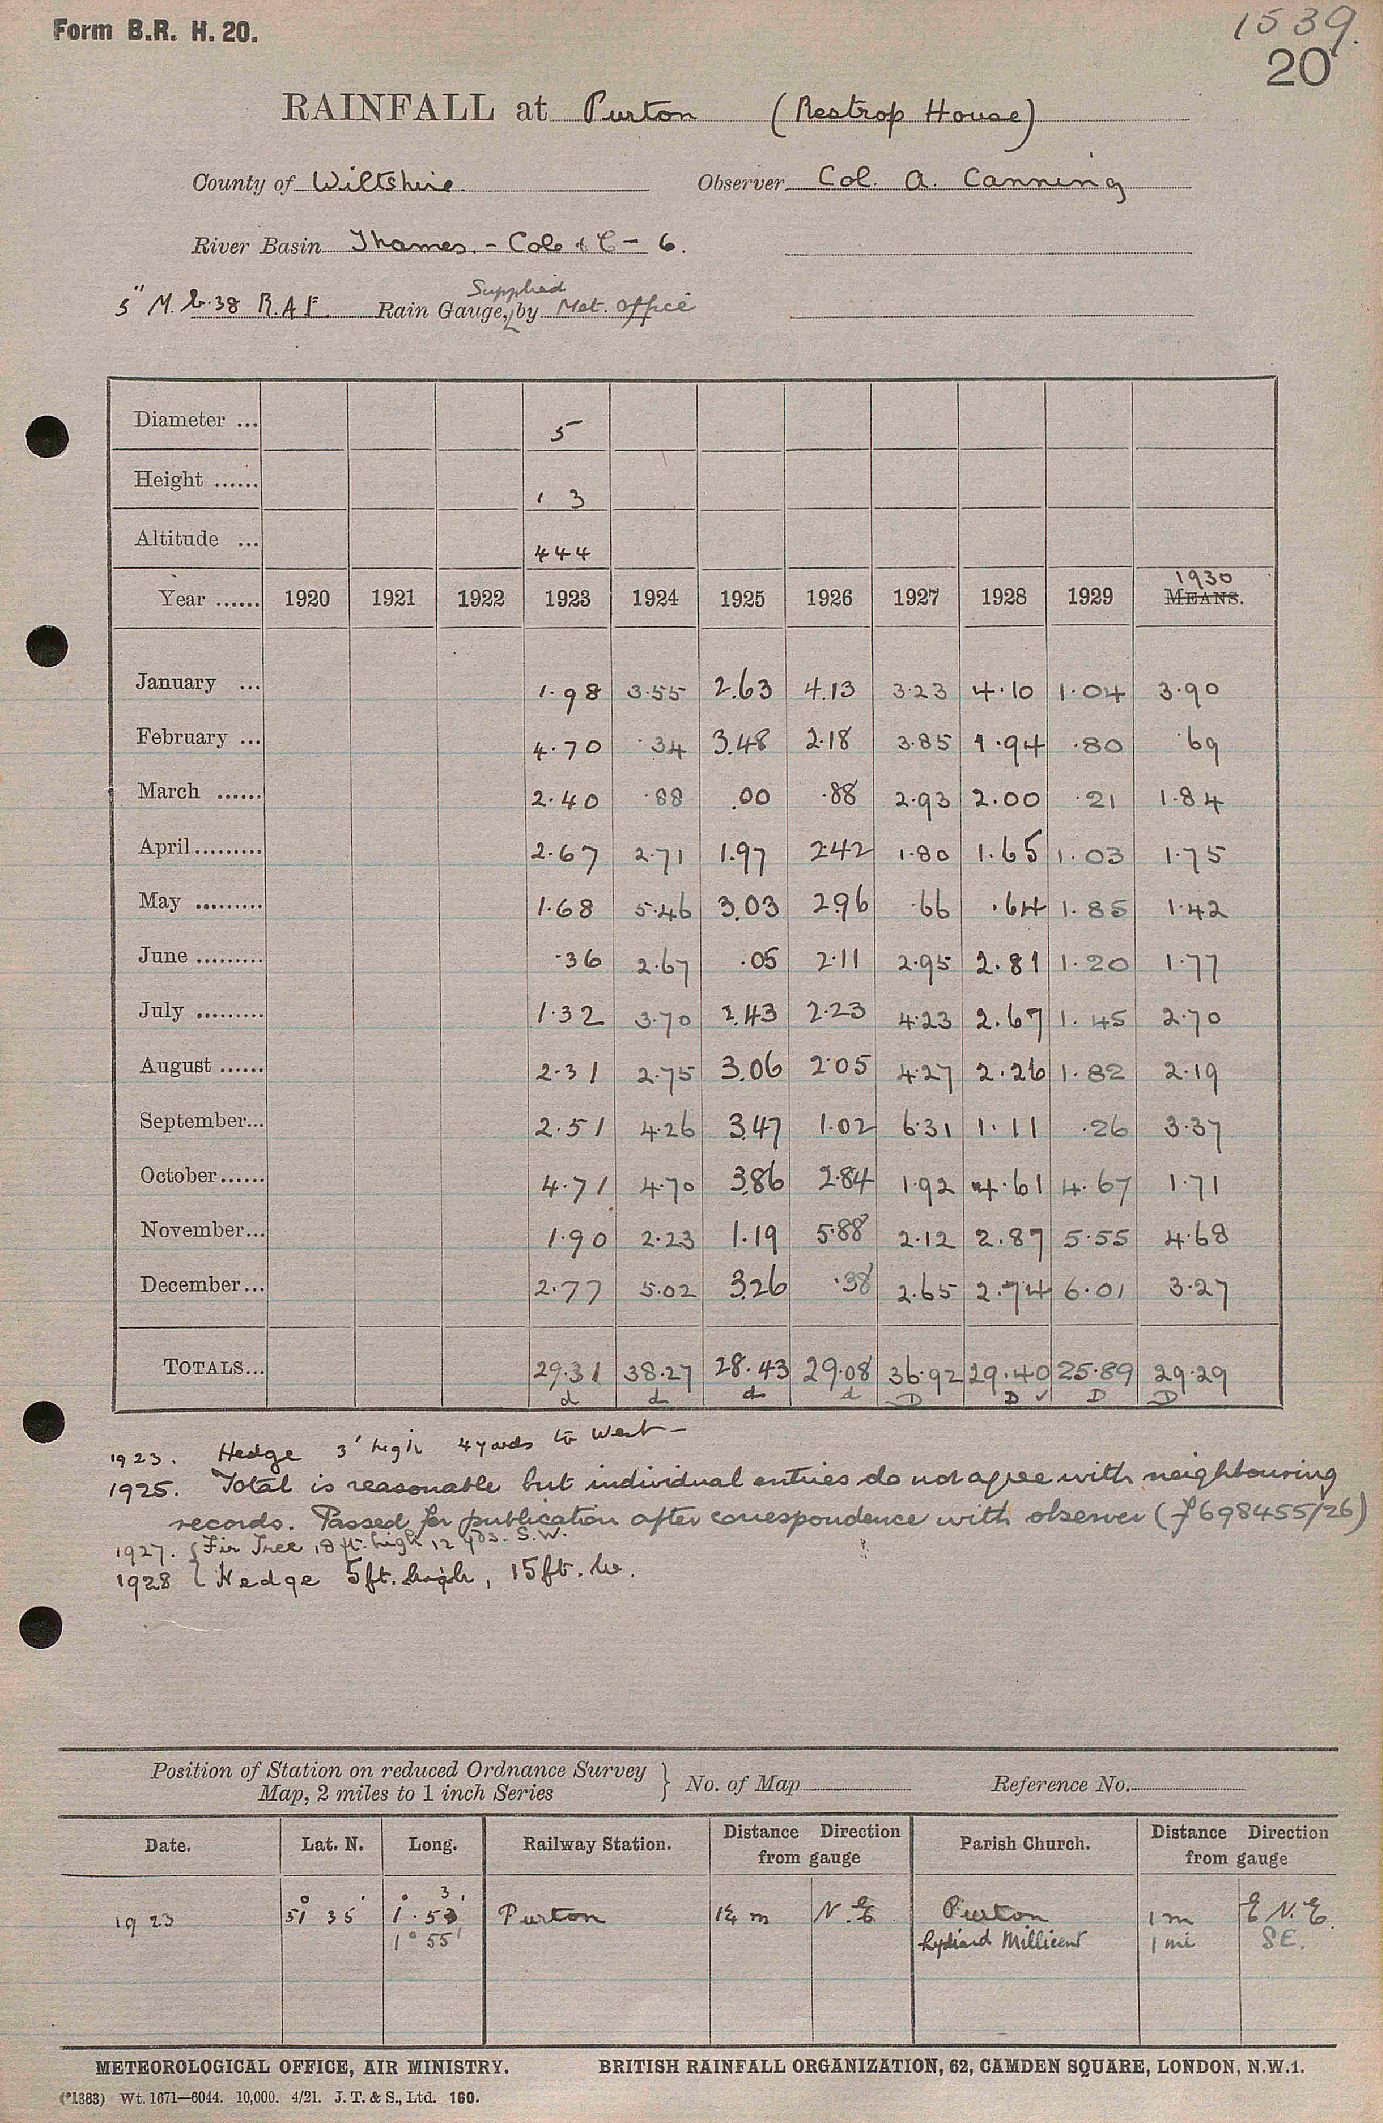 Form B.R. H. 20.
1539.
20
RAINFALL at Purton (Restrop House)
County of Wiltshire Observer Col. A. Canning
River Basin Thames. - Cole & C - 6.
Supplied
5" M. R.A.F. Rain Gauge, by Met. Office
Diameter ... 5
Height ...... ' 3
Altitude ... 444
1930
Year ...... 1920 1921 1922 1923 1924 1925 1926 1927 1928 1929 MEANS.
January ... 1.98 3.55 2.63 4.13 3.23 4.10 1.04 3.90
February ... 4.70 .34 3.48 2.18 3.85 1.94 .80 .69
March ...... 2.40 .88 .00 .88 2.93 2.00 .21 1.84
April......... 2.67 2.71 1.97 2.42 1.80 1.65 1.03 1.75
May ......... 1.68 5.46 3.03 2.96 .66 .64 1.85 1.42
June ......... .36 2.67 .05 2.11 2.95 2.81 1.20 1.77
July ......... 1.32 3.70 2.43 2.23 4.23 2.67 1.45 2.70
August ...... 2.31 2.75 3.06 2.05 4.27 2.26 1.82 2.19
September... 2.51 4.26 3.47 1.02 6.31 1.11 .26 3.37
October...... 4.71 4.70 3.86 2.84 1.92 4.61 4.67 1.71
November... 1.90 2.23 1.19 5.88 2.12 2.87 5.55 4.68
December... 2.77 5.02 3.26 .38 2.65 2.74 6.01 3.27
TOTALS... 29.31 38.27 28.43 29.08 36.92 29.40 25.89 29.29
d d d d D D ✓ D D
1923. Hedge 3' high 4 yards to West -
1925. Total is reasonable but individual entries do not agree with neighbouring
records. Passed for publication after correspondence with observer (f698455/26)
1927. { Fir Tree 18 ft. high 12 yds. S.W.
1928 { Hedge 5ft. high, 15ft. W.
Position of Station on reduced Ordnance Survey
Map, 2 miles to 1 inch Series } No. of Map Reference No.
Date. Lat. N. Long. Railway Station. Distance Direction from gauge Parish Church. Distance Direction from gauge
1923 51° 35' 1° 53' Purton 1¼ m N.E. Purton 1 m E.N.E.
1° 55' Lydiard Millicent 1 mi SE.
METEOROLOGICAL OFFICE, AIR MINISTRY. BRITISH RAINFALL ORGANIZATION, 62, CAMDEN SQUARE, LONDON, N.W.1.
(*1383) Wt. 1671—6044. 10,000. 4/21. J. T. & S., Ltd. 160.